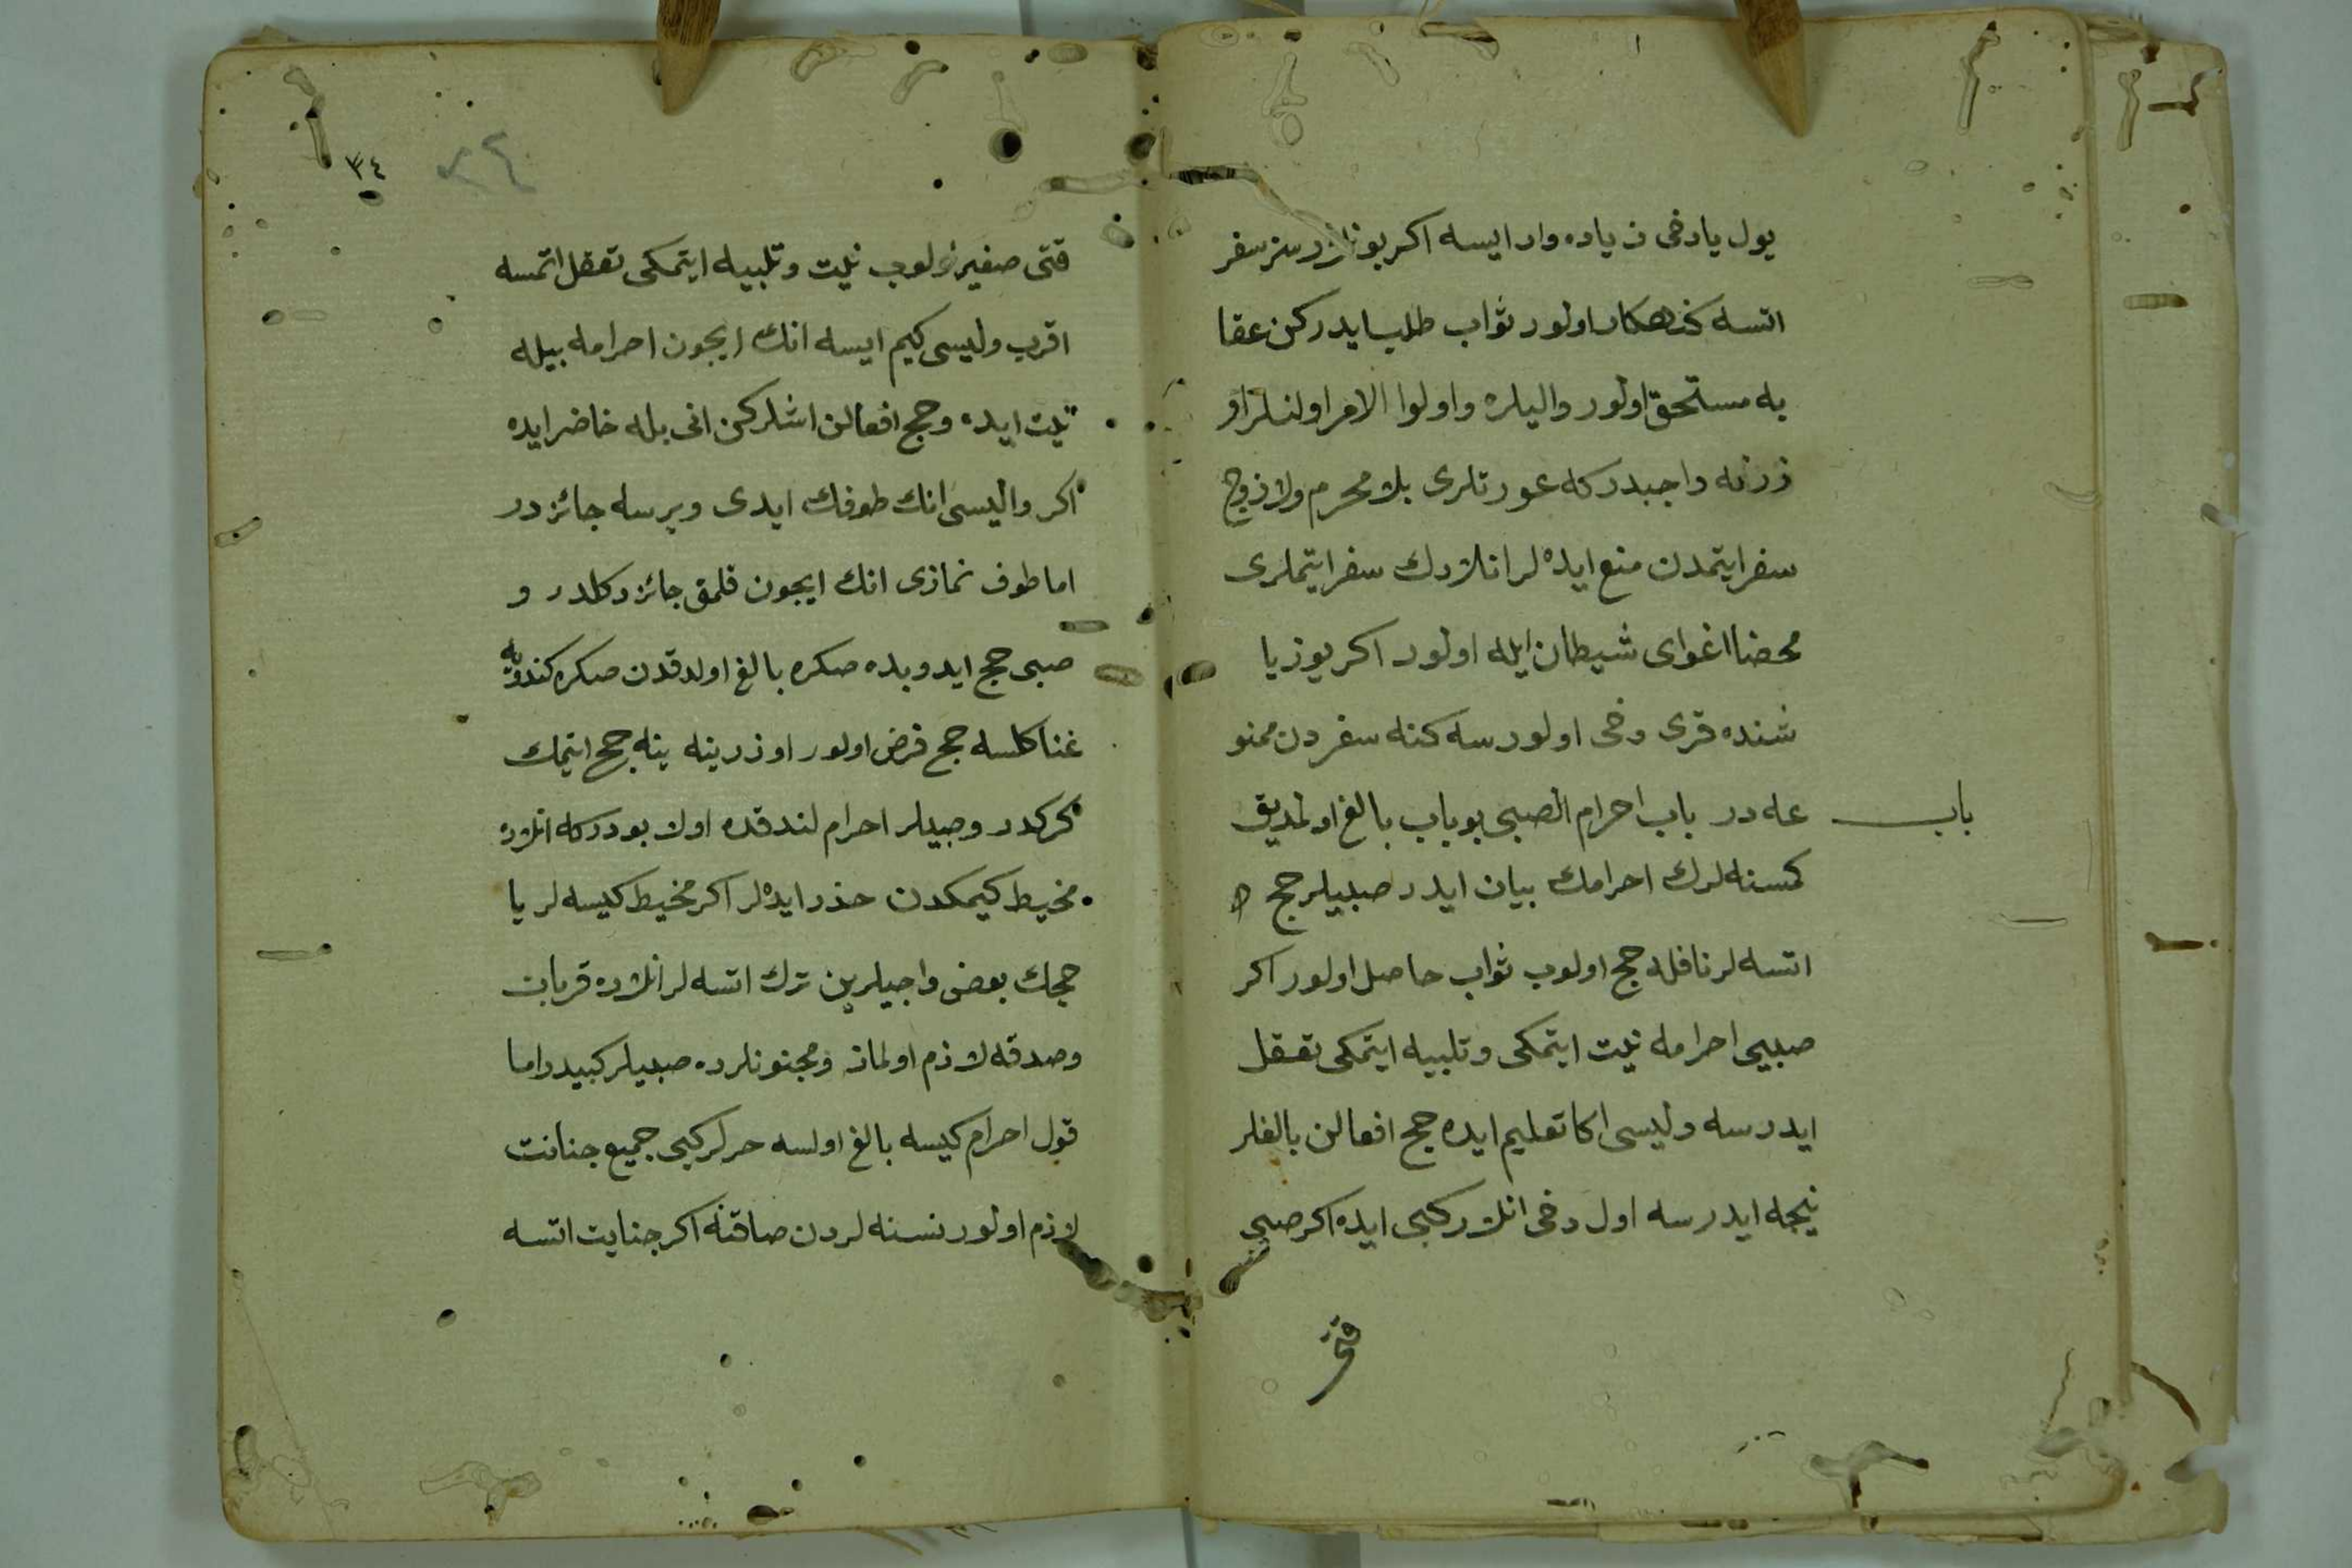 يول يا دخى زياده وار ايسه اكر بونلرسز سفر
اتسه كنهكار اولور ثواب طلب ايدركن عقا
به مستحق اولور واليلره واولوا الامر اولنلر او
زرنه واجبدركه عورتلرى بلا محرم ولا زوج
سفر ايتمدن منع ايده لر انلاردك سفر ايتملرى
محضا اغواى شيطان ايله اولور اكر يوز يا
شنده قرى دخى اولورسه كنه سفردن ممنو
باب
عه در باب احرام الصبى بو باب بالغ اولمديق
كمسنه لرك احرامك بيان ايدر صبيلر حج
اتسه لر نافله حج اولوب ثواب حاصل اولور اكر
صبيى احرامه نيت ايتمكى وتلبيه ايتمكى تعقل
ايدرسه وليسى اكا تعليم ايده حج افعالن بالغلر
نيجه ايدرسه اول دخى انلار كبى ايده اكر صبى
قتى
٣٤
٣٤
قتى صغير اولوب نيت وتلبيه ايتمكى تعقل اتمسه
اقرب وليسى كيم ايسه انك ايجون احرامه بيله
نيت ايده وحج افعالن اشلركن انى بله حاضر ايده
اكر واليسى انك طوفك ايدى ويرسه جائزدر
اما طوف نمازى انك ايجون قلمق جائز دكلدر و
صبى حج ايدوبده صكره بالغ اولدقدن صكره كندويه
غنا كلسه حج فرض اولور اوزرينه ينه حج ايتمك
كركدر وصبيلر احرام لندقده اول بودركه انلاره
مخيط كيمكدن حذر ايده لر اكر مخيط كيسه لر يا
حجك بعضى واجبلرين ترك اتسه لر انلاره قربان
وصدقه لازم اولماز ومجنونلرده صبيلر كبيدر اما
قول احرام كيسه بالغ اولسه حرلر كبى جميع جنانت
لازم اولور نسنه لردن صاقنه اكر جنايت اتسه